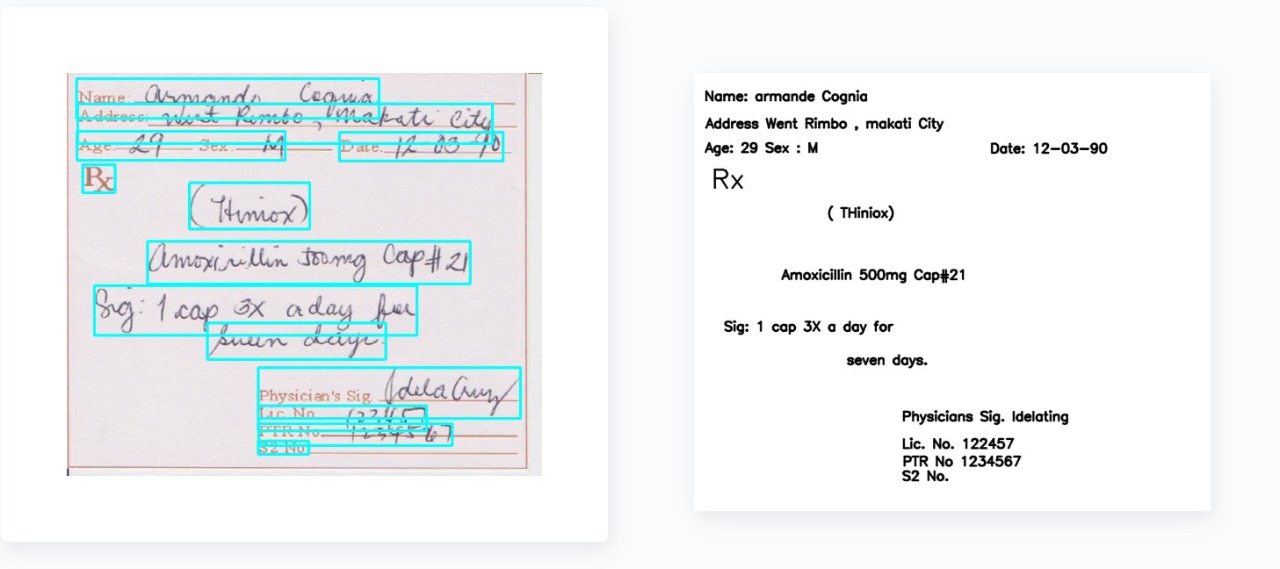 Name: Armando Cognia
Address: West Rimbo, Makati City
Age: 29 Sex: M Date: 12-03-90
Rx
(THiniox)
Amoxicillin 500mg Cap#21
Sig: 1 cap 3X a day for
seven days.
Physician's Sig. JdelaCruz
Lic. No. 12345
PTR No. 1234567
S2 No.
Name: armande Cognia
Address Went Rimbo , makati City
Age: 29 Sex : M Date: 12-03-90
Rx
( THiniox)
Amoxicillin 500mg Cap#21
Sig: 1 cap 3X a day for
seven days.
Physicians Sig. Idelating
Lic. No. 122457
PTR No 1234567
S2 No.